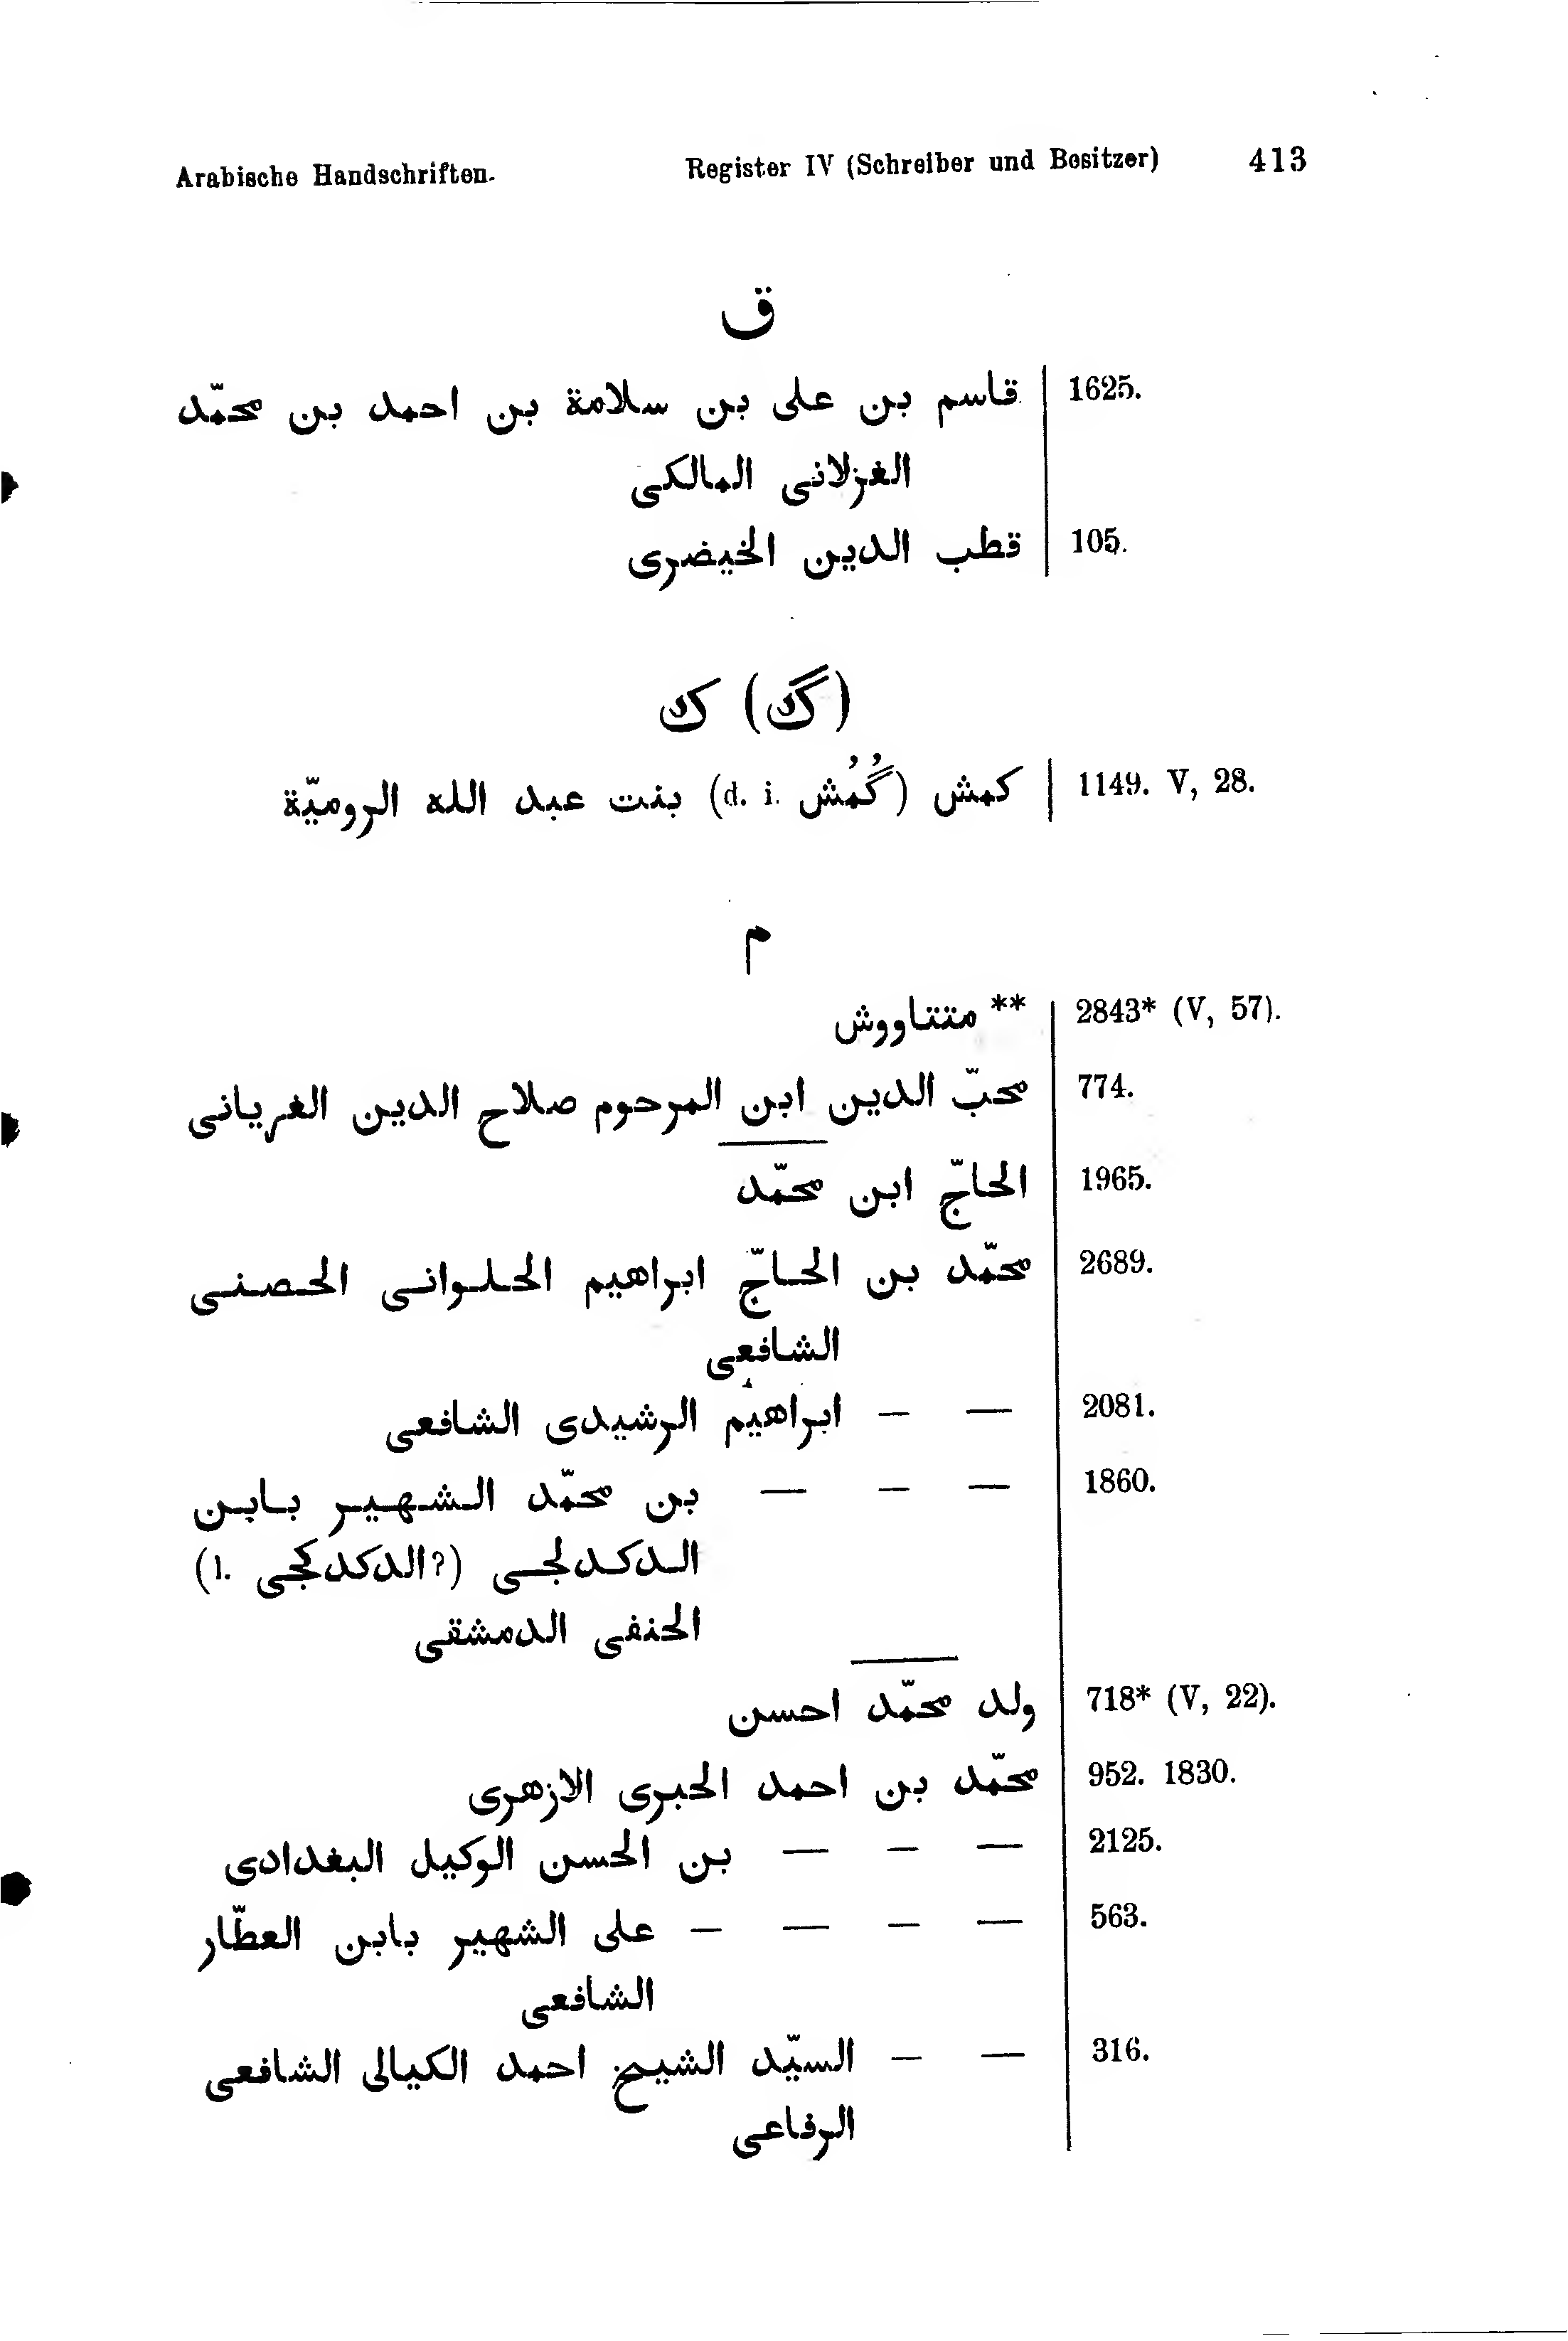 Arabische Handschriften. Register IV (Schreiber und Besitzer) 413
ق
قاسم بن على بن سلامة بن احمد بن محمّد 1625.
الغزلانى المالكى
قطب الدين الخيضرى 105.
ك (گ)
كمش (گُمُش d. i.) بنت عبد الله الروميّة 1149. V, 28.
م
** متتاووش 2843* (V, 57).
محبّ الدين ابن المرحوم صلاح الدين الغريانى 774.
الحاجّ ابن محمّد 1965.
محمّد بن الحاجّ ابراهيم الحلوانى الحصنى 2689.
الشافعى
— – ابراهيم الرشيدى الشافعى 2081.
— – — بن محمّد الشهير بابن 1860.
الدكدلجى (?الدكدكجى l.)
الحنفى الدمشقى
ولد محمّد احسن 718* (V, 22).
محمّد بن احمد الحبرى الازهرى 952. 1830.
— – — بن الحسن الوكيل البغدادى 2125.
— – — – على الشهير بابن العطّار 563.
الشافعى
— – السيّد الشيخ احمد الكيالى الشافعى 316.
الرفاعى